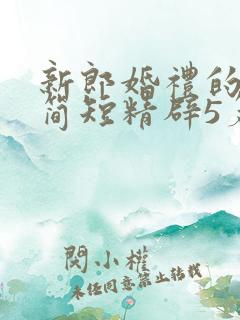 新郎婚禮的
简短精辟5
閔小權
未经同意禁止转载